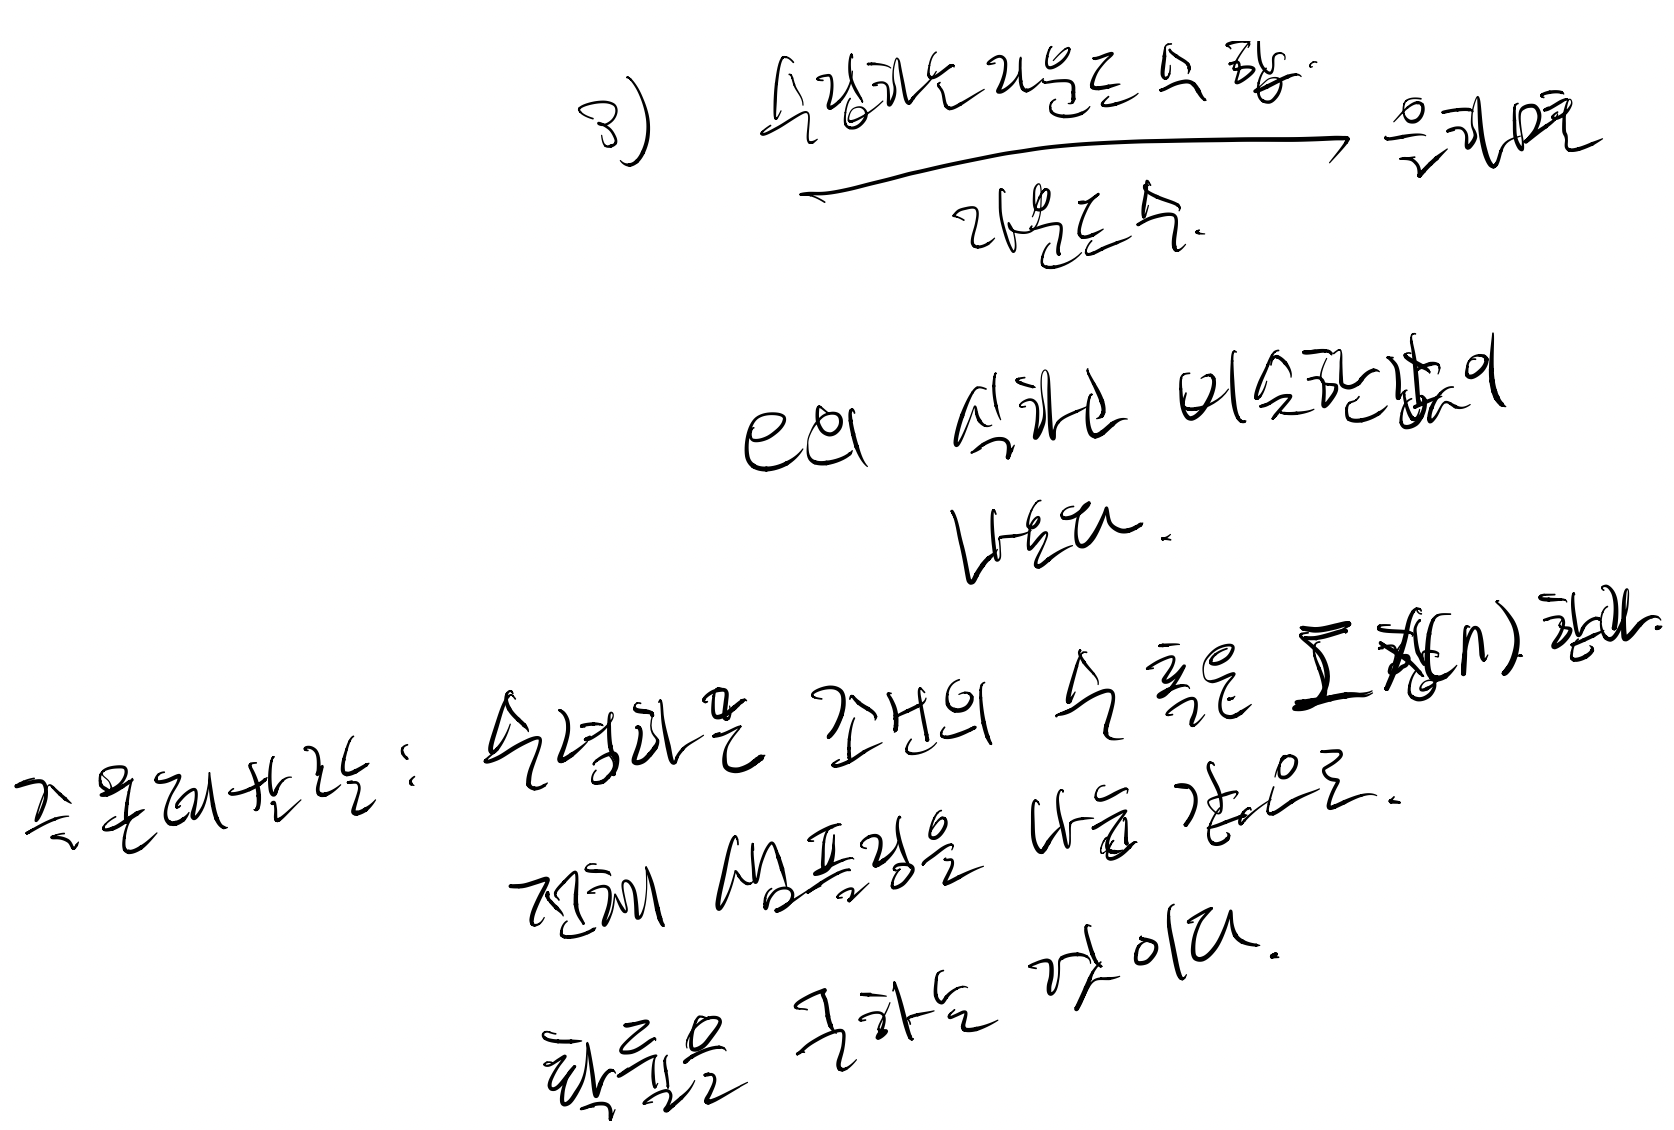 3) 수렴하는 라운드 수 합.
라운드 수.
을 하면
e의 식하고 비슷한 값이
나온다.
즉 몬테카를 : 수렴하는 조건의 수 혹은 Σ 항(n).
전체 샘플링을 나눈 값으로.
확률을 구하는 것이다.